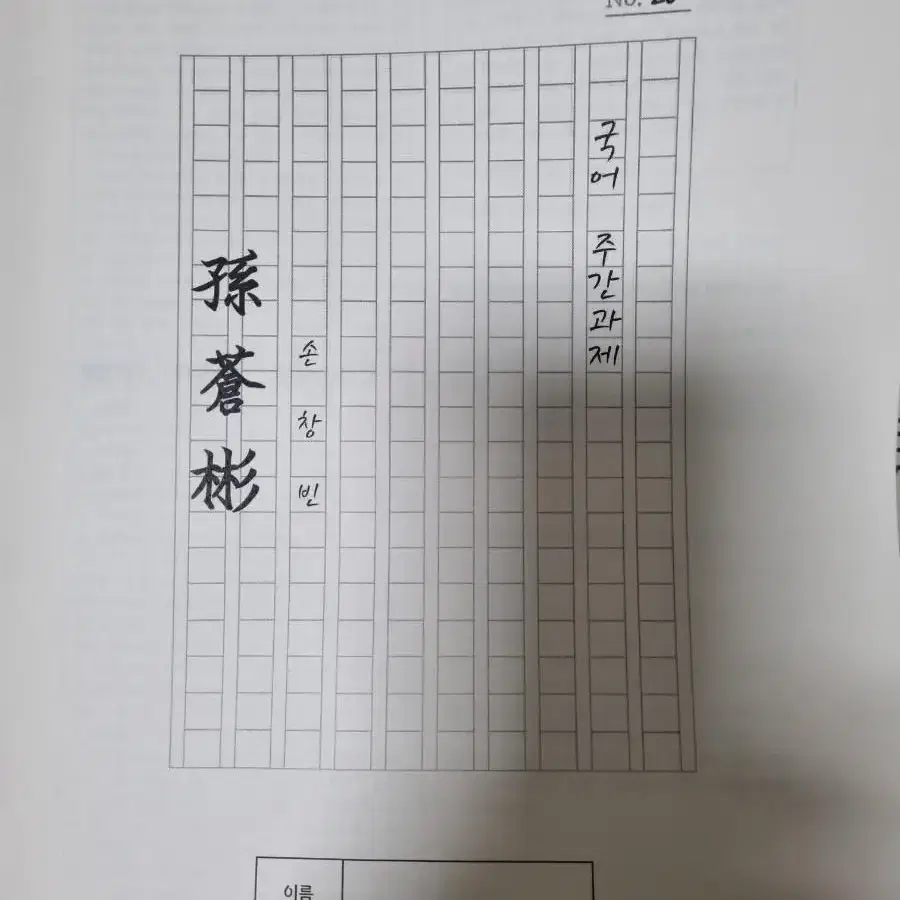 No.
국어 주간과제
손창빈
孫蒼彬
이름